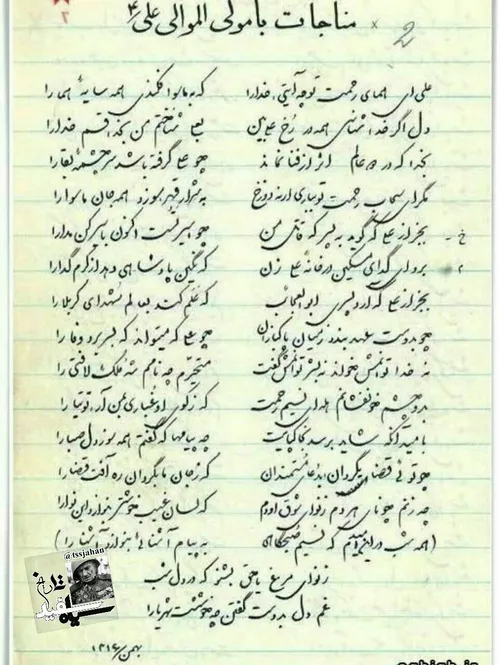 مناجات با مولی الموالی علی ع
علی ای همای رحمت تو چه آیتی خدا را که به ماسوا فکندی همه سایهٔ هما را
دل اگر خداشناسی همه در رخ علی بین به علی شناختم من بخدا قسم خدا را
بخدا که در دو عالم اثر از فنا نماند چو علی گرفته باشد سر چشمهٔ بقا را
مگر ای سحاب رحمت تو بباری ارنه دوزخ به شرار قهر سوزد همه جان ماسوا را
بجز از علی که گوید به پسر که قاتل من چو اسیر تست اکنون به اسیر کن مدارا
برو ای گدای مسکین در خانهٔ علی زن که نگین پادشاهی دهد از کرم گدا را
بجز از علی که آرد پسری ابوالعجائب که علم کند بعالم شهدای کربلا را
چو بدوست عهد بندد ز میان پاکبازان چو علی که میتواند که بسر برد وفا را
نه خدا توانمش خواند نه بشر توانمش گفت متحیرم چه نامم شه ملک لافتی را
بدو چشم خونفشانم هله ای نسیم رحمت که ز کوی او غباری بمن آر توتیا را
بامید آنکه شاید برسد بخاک پایت چه پیامها که گفتم همه سوز دل صبا را
چو تویی قضای گردان بدعای مستمندان که ز جان ما بگردان ره آفت قضا را
چه زنم چو نای هر دم ز نوای شوق او دم که لسان غیب خوشتر بنوازد این نوا را
(همه شب در این امیدم که نسیم صبحگاهی به پیام آشنائی بنوازد آشنا را)
ز نوای مرغ یا حق بشنو که در دل شب
غم دل بدوست گفتن چه خوشست شهریارا
بهمن/۱۳۱۶
@tssjahan